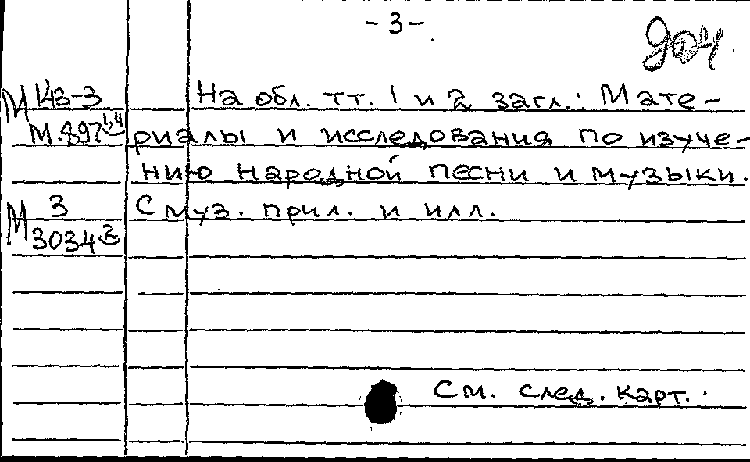 - 3 -
904
М 143-3 На обл. тт. 1 и 2 загл.: Мате-
М.897 риалы и исследования по изуче-
нию народной песни и музыки.
М 3 С муз. прил. и илл.
3034
См. след. карт.